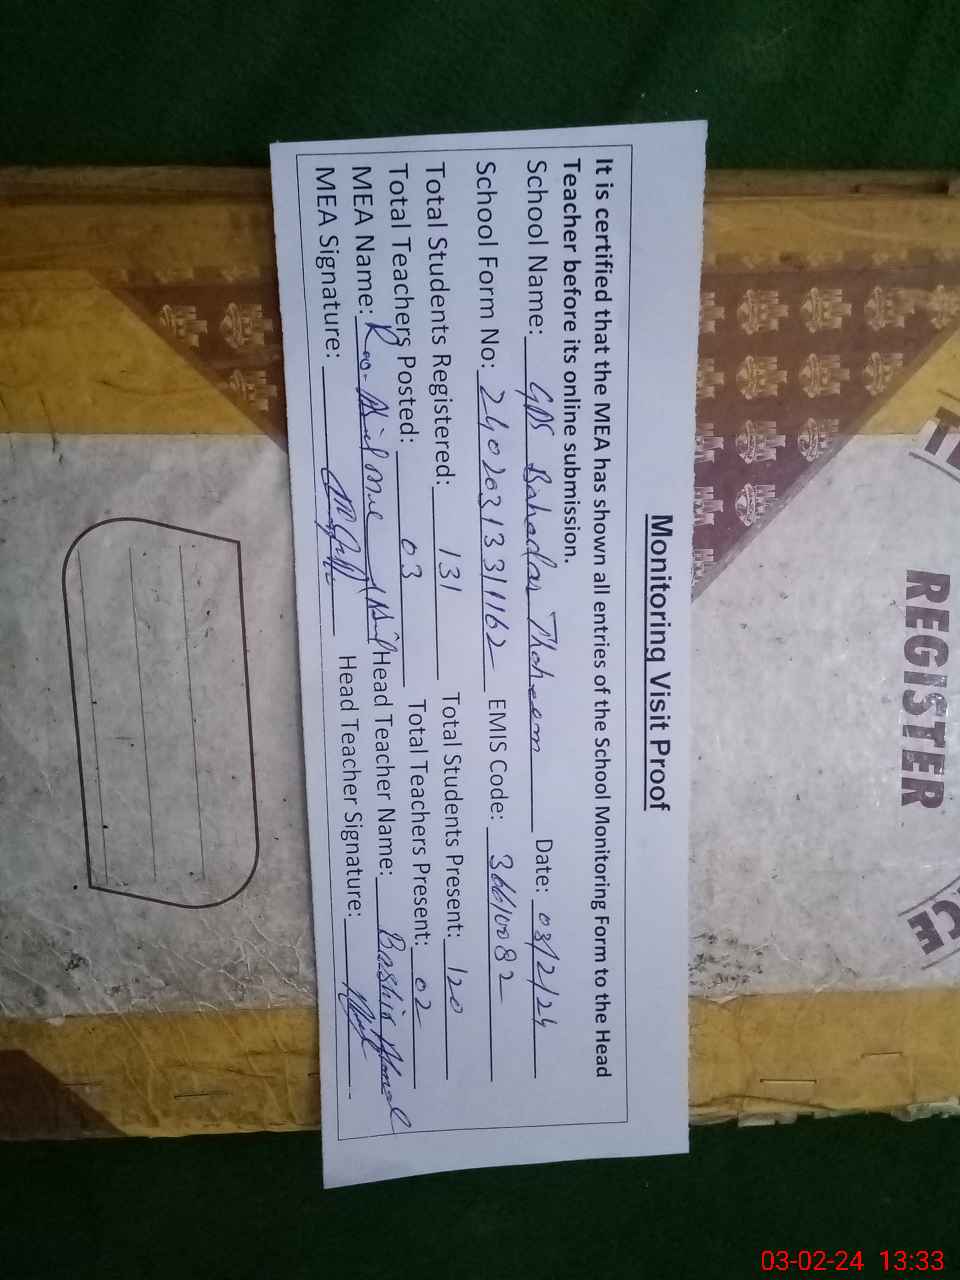 Monitoring Visit Proof
It is certified that the MEA has shown all entries of the School Monitoring Form to the Head
Teacher before its online submission.
School Name: GPS Bahadar Thaheem Date: 03/2/24
School Form No: 2402031331162 EMIS Code: 36610082
Total Students Registered: 131 Total Students Present: 120
Total Teachers Posted: 03 Total Teachers Present: 02
MEA Name: Rao Head Teacher Name: Bashir Ahmad
MEA Signature: Head Teacher Signature:
REGISTER
03-02-24 13:33